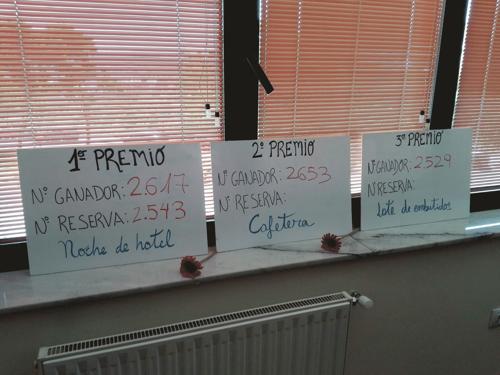 1er PREMIO
Nº GANADOR: 2.617
Nº RESERVA: 2.543
Noche de hotel
2º PREMIO
Nº GANADOR: 2.653
Nº RESERVA:
Cafetera
3er PREMIO
Nº GANADOR: 2.529
Nº RESERVA:
Lote de embutidos